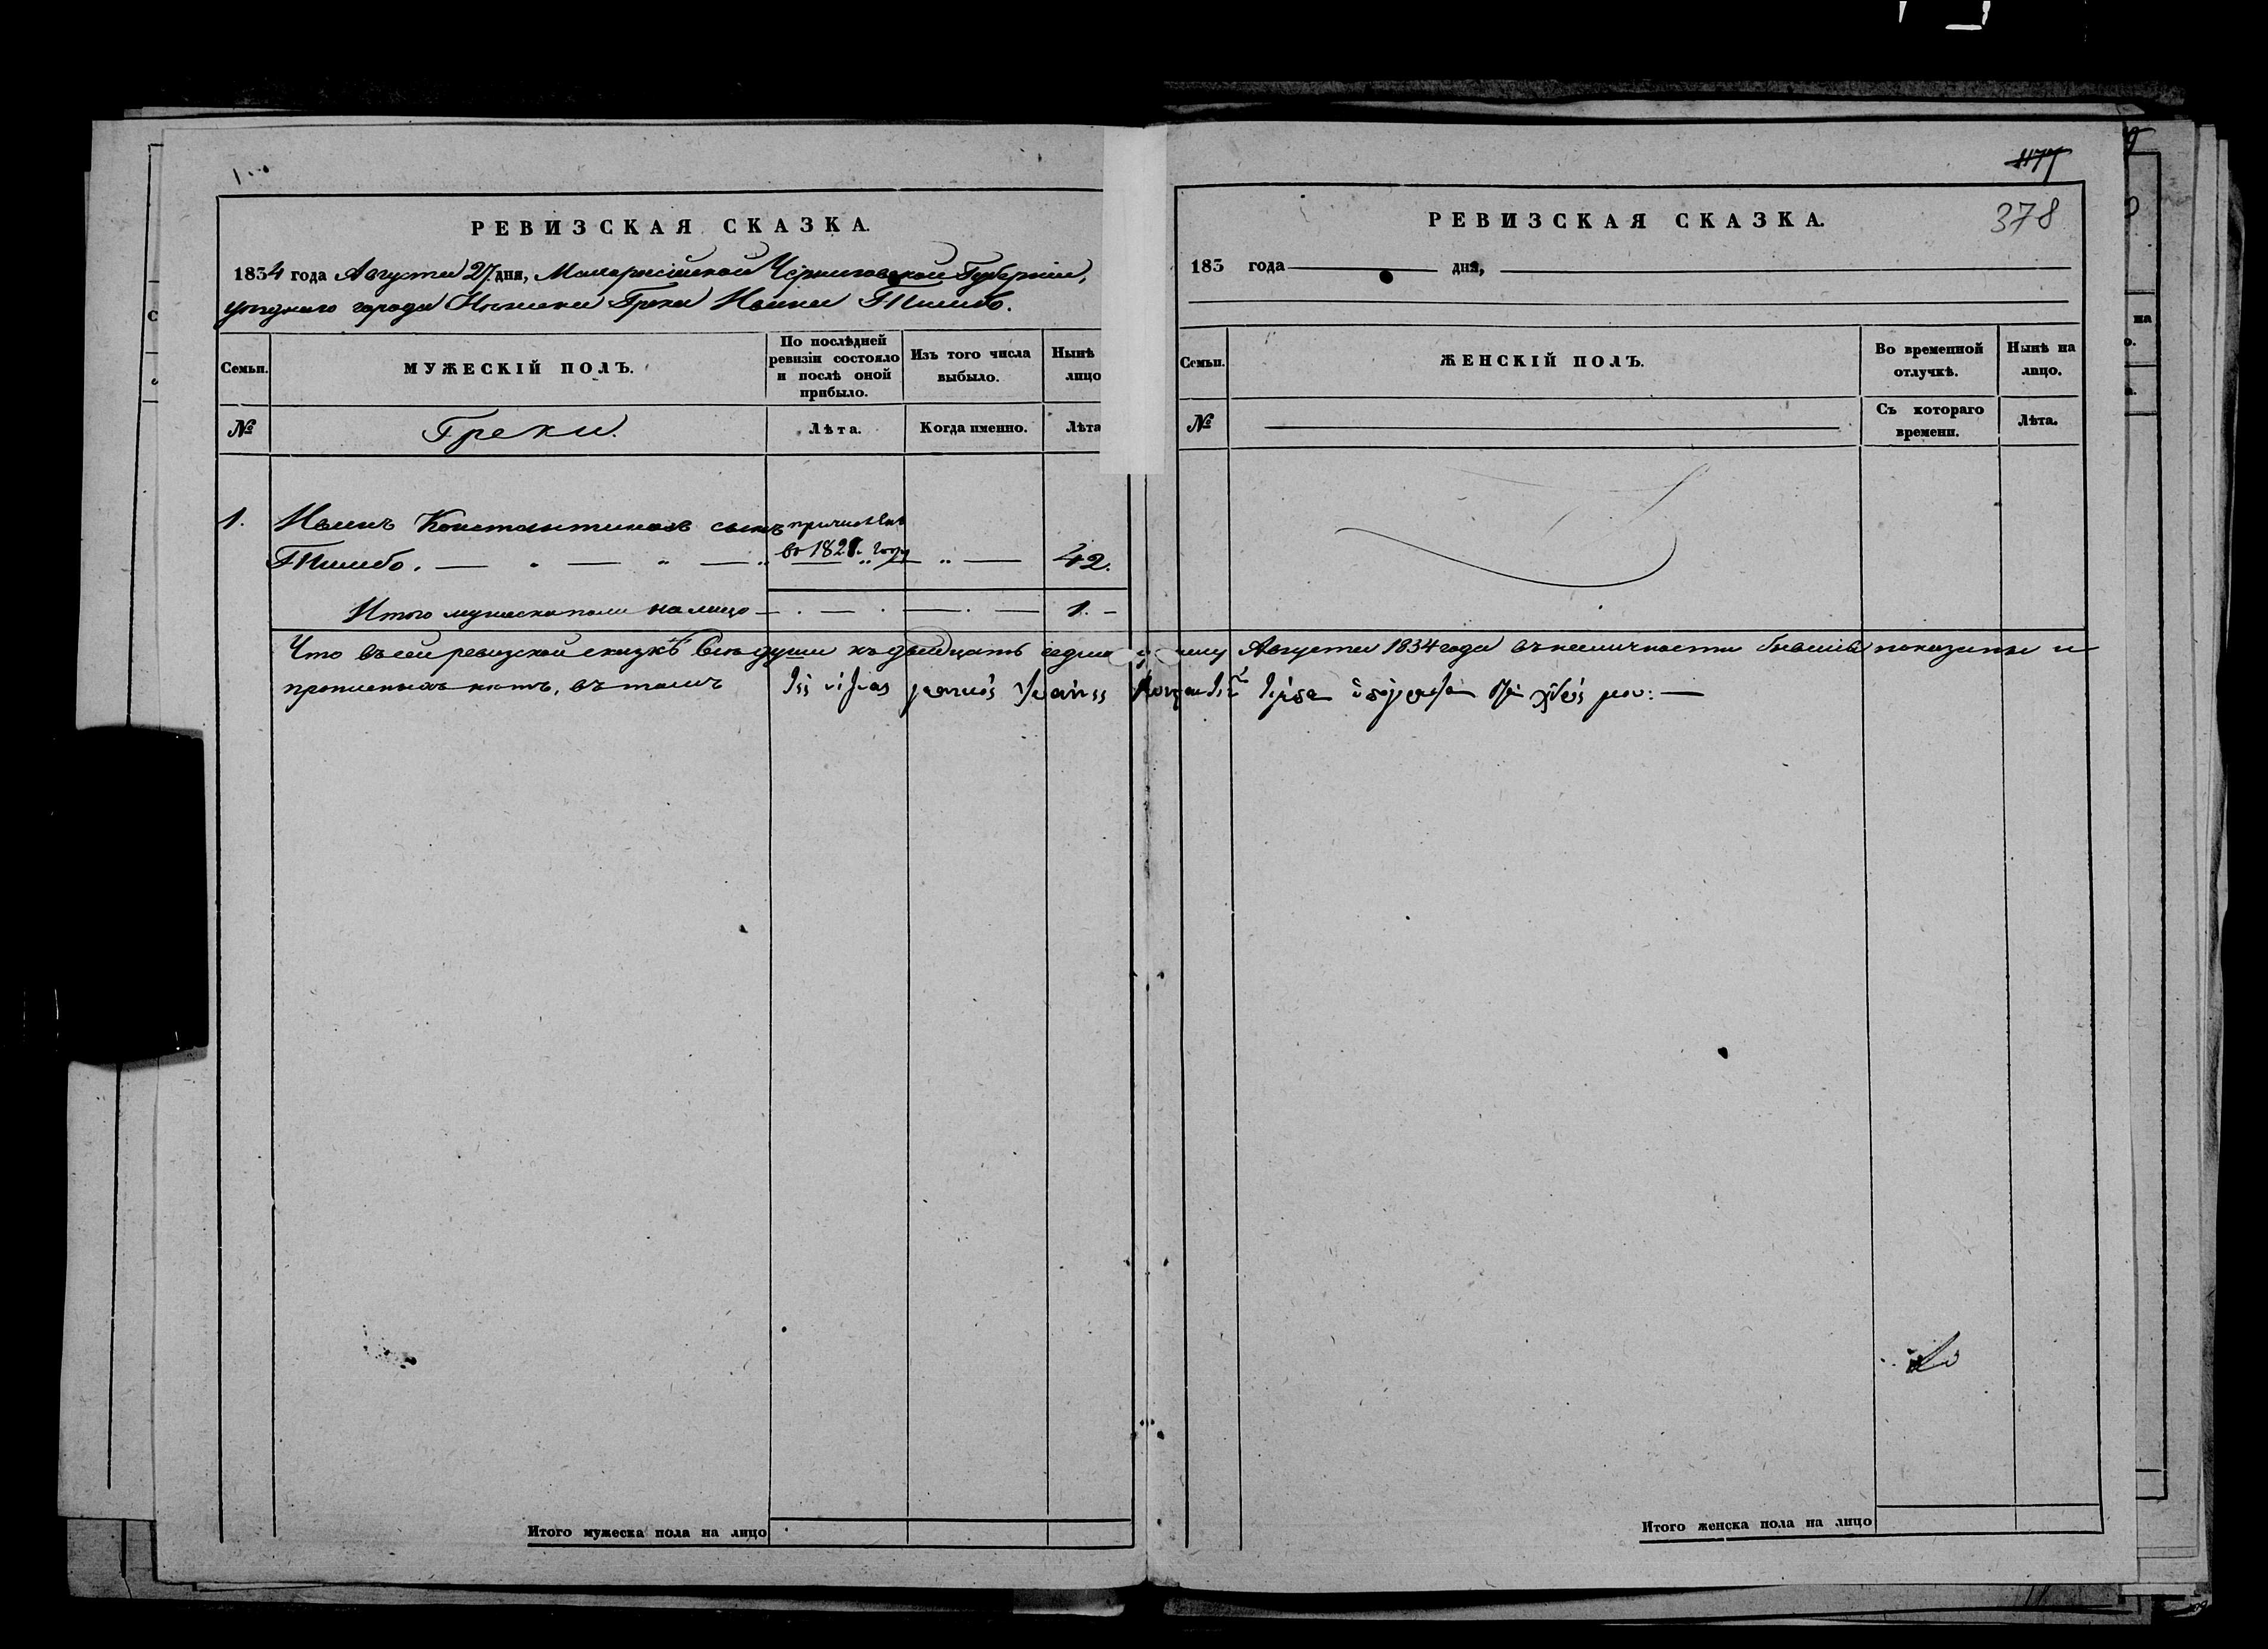 1177
378
РЕВИЗСКАЯ СКАЗКА.
1834 года Августа 27 дня, Малороссійской Черниговской Губерніи,
уезднаго города Нежина Грека Ивана
Семьи.
МУЖЕСКІЙ ПОЛЪ.
По послѣдней ревизіи состояло и послѣ оной прибыло.
Изъ того числа выбыло.
Нынѣ лицо
№
Греки.
Лѣта.
Когда именно.
Лѣта
1. Иванъ Константиновъ сынъ причисленъ
во 1821. году 42.
Итого мужеска пола на лицо 1.
РЕВИЗСКАЯ СКАЗКА.
183 года дня,
Семьи.
ЖЕНСКІЙ ПОЛЪ.
Во временной отлучкѣ.
Нынѣ на лицо.
№
Съ котораго времени.
Лѣта.
Что въ сей ревизской сказкѣ все души къ двадцать седьмому числу Августа 1834 года въ наличности бывшіе показаны и
прописныхъ нѣтъ, въ томъ
Итого мужеска пола на лицо
Итого женска пола на лицо